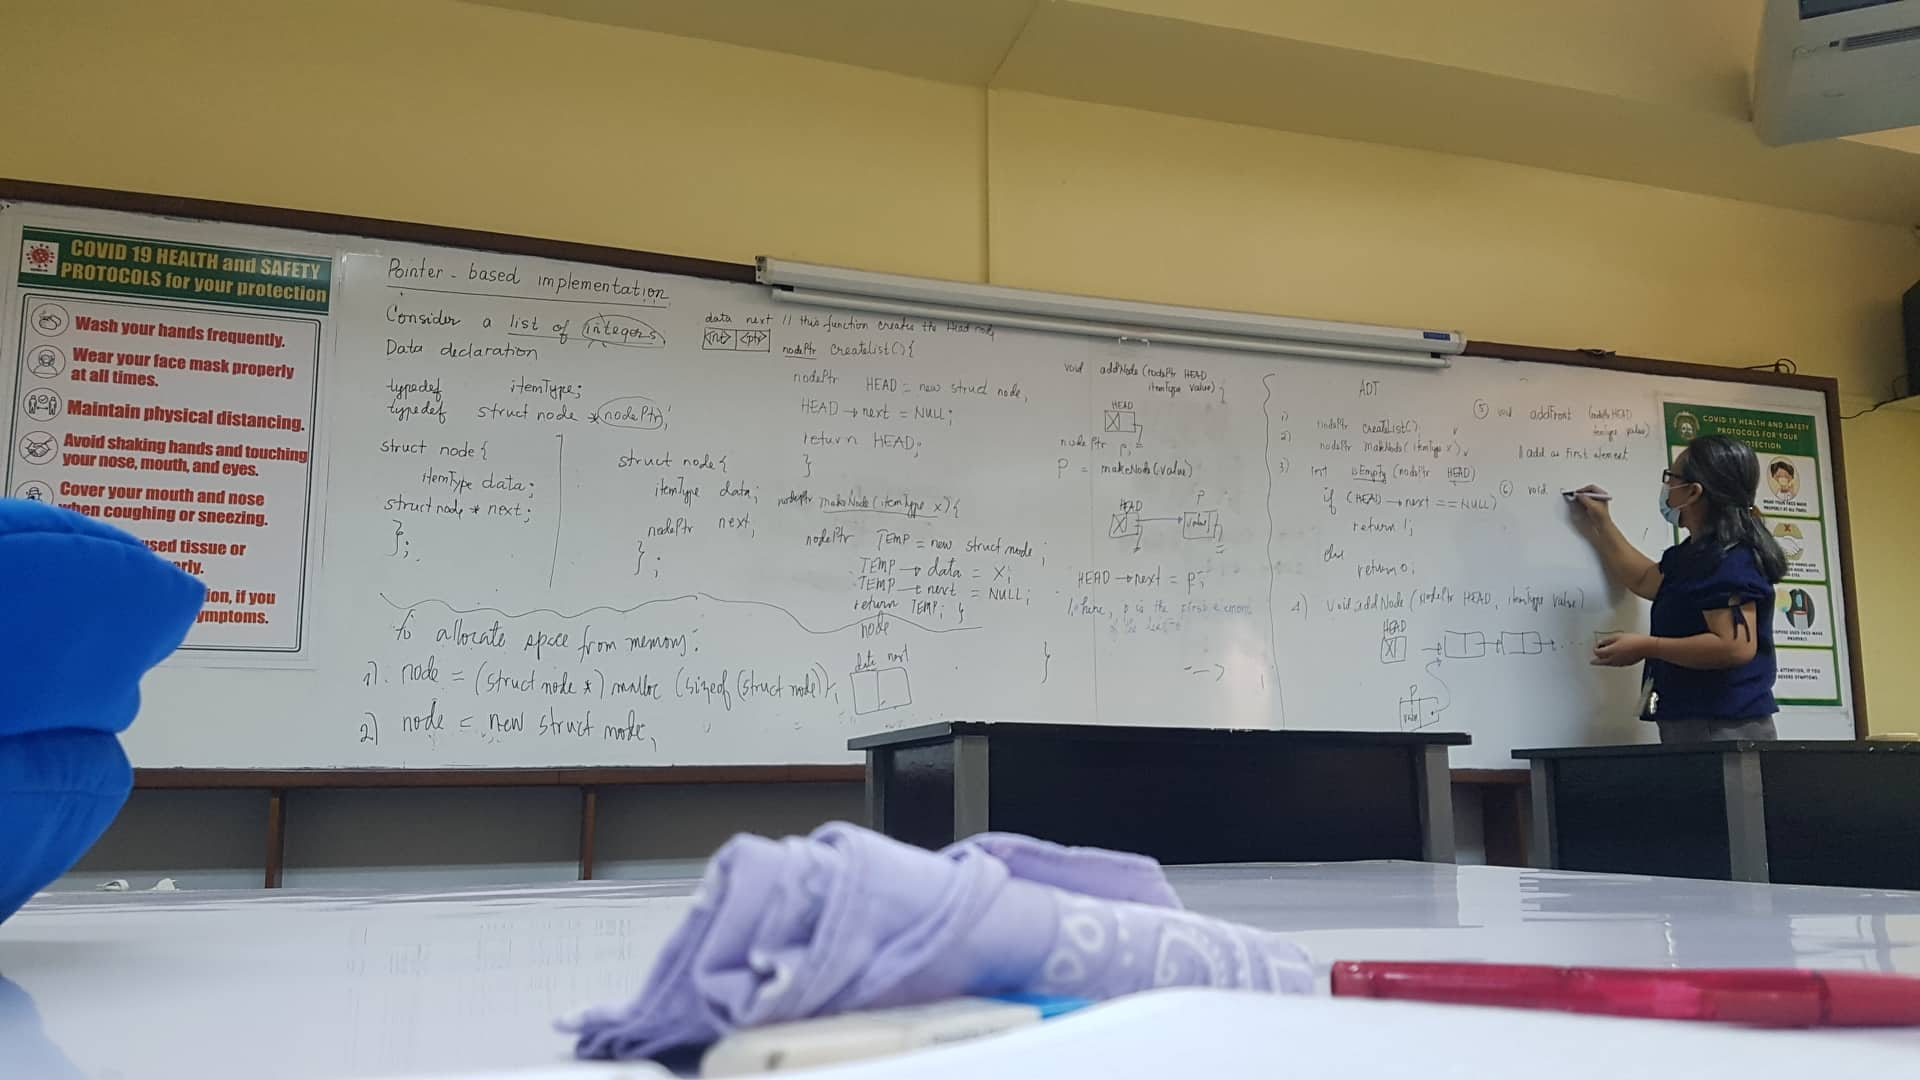 COVID 19 HEALTH and SAFETY
PROTOCOLS for your protection
Wash your hands frequently.
Wear your face mask properly
at all times.
Maintain physical distancing.
Avoid shaking hands and touching
your nose, mouth, and eyes.
Cover your mouth and nose
when coughing or sneezing.
used tissue or
ion, if you
symptoms.
Pointer-based implementation
Consider a list of integers
Data declaration
typedef itemType;
typedef struct node *nodePtr;
struct node {
itemType data;
struct node * next;
};
struct node {
itemType data;
nodePtr next;
};
to allocate space from memory:
1). node = (struct node *) malloc (sizeof (struct node));
2) node = new struct node;
data next
<int> <ptr>
// this function creates the Head node
nodePtr createList() {
nodePtr HEAD = new struct node;
HEAD → next = NULL;
return HEAD;
}
nodeptr makeNode (itemType x) {
nodePtr TEMP = new struct node;
TEMP → data = X;
TEMP → next = NULL;
return TEMP; }
node
data next
void addNode (nodePtr HEAD
itemType value) {
HEAD
nodePtr P;
P = makeNode (value)
HEAD P
value
HEAD → next = p;
where, p is the first element
of the list
}
ADT
1) nodePtr createList();
2) nodePtr makeNode (itemType x);
3) int isEmpty (nodePtr HEAD)
if (HEAD → next == NULL)
return 1;
else
return 0;
4) Void addNode (NodePtr HEAD, itemType value)
HEAD
P
value
5 void addFront (nodePtr HEAD
itemType value)
// add as first element
6 void
COVID 19 HEALTH AND SAFETY
PROTOCOLS FOR YOUR